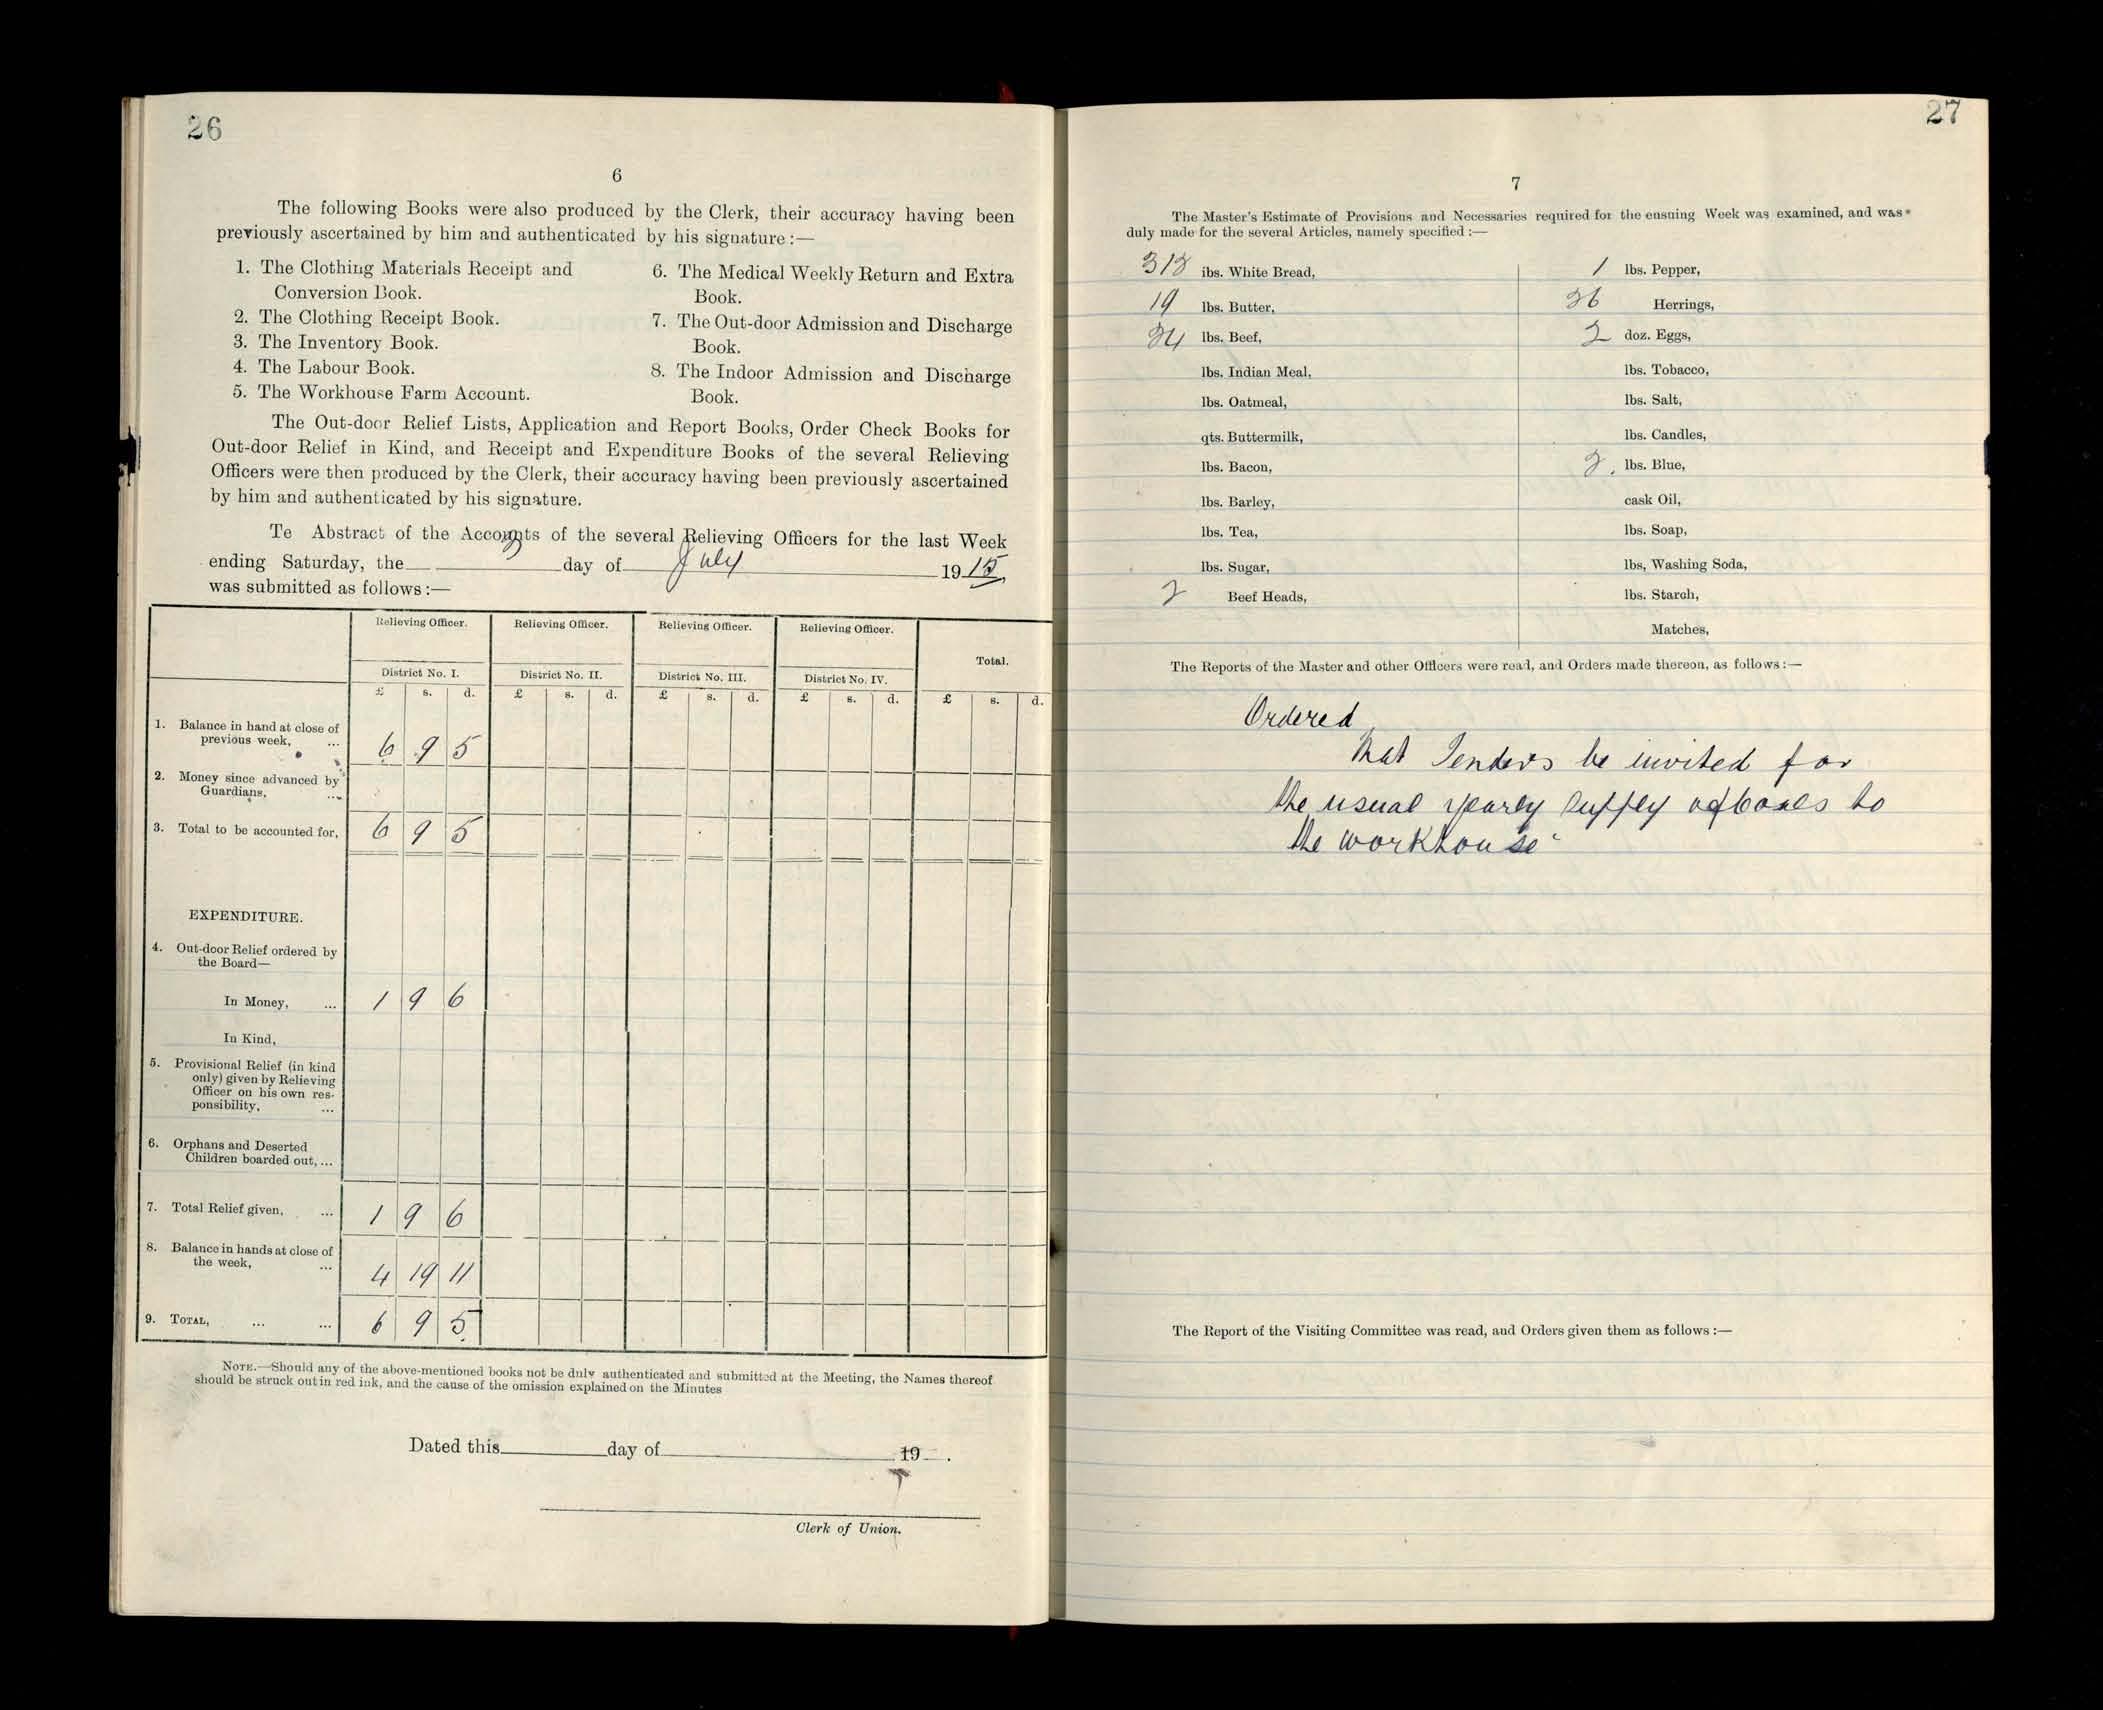 26
6
The following Books were also produced by the Clerk, their accuracy having been
previously ascertained by him and authenticated by his signature :—
1. The Clothing Materials Receipt and
Conversion Book.
2. The Clothing Receipt Book.
3. The Inventory Book.
4. The Labour Book.
5. The Workhouse Farm Account.
6. The Medical Weekly Return and Extra
Book.
7. The Out-door Admission and Discharge
Book.
8. The Indoor Admission and Discharge
Book.
The Out-door Relief Lists, Application and Report Books, Order Check Books for
Out-door Relief in Kind, and Receipt and Expenditure Books of the several Relieving
Officers were then produced by the Clerk, their accuracy having been previously ascertained
by him and authenticated by his signature.
Te Abstract of the Accounts of the several Relieving Officers for the last Week
ending Saturday, the 3 day of July 1915,
was submitted as follows :—
Relieving Officer. Relieving Officer. Relieving Officer. Relieving Officer.
Total.
District No. I. District No. II. District No. III. District No. IV.
£ s. d. £ s. d. £ s. d. £ s. d. £ s. d.
1. Balance in hand at close of
previous week, ... 6 9 5
2. Money since advanced by
Guardians, ...
3. Total to be accounted for, 6 9 5
EXPENDITURE.
4. Out-door Relief ordered by
the Board—
In Money, ... 1 9 6
In Kind,
5. Provisional Relief (in kind
only) given by Relieving
Officer on his own res-
ponsibility, ...
6. Orphans and Deserted
Children boarded out, ...
7. Total Relief given, ... 1 9 6
8. Balance in hands at close of
the week, ... 4 19 11
9. TOTAL, ... ... 6 9 5
NOTE.—Should any of the above-mentioned books not be duly authenticated and submitted at the Meeting, the Names thereof
should be struck out in red ink, and the cause of the omission explained on the Minutes
Dated this day of 19 .
Clerk of Union.
27
7
The Master's Estimate of Provisions and Necessaries required for the ensuing Week was examined, and was
duly made for the several Articles, namely specified :—
318 lbs. White Bread,
19 lbs. Butter,
24 lbs. Beef,
lbs. Indian Meal,
lbs. Oatmeal,
qts. Buttermilk,
lbs. Bacon,
lbs. Barley,
lbs. Tea,
lbs. Sugar,
2 Beef Heads,
1 lbs. Pepper,
36 Herrings,
2 doz. Eggs,
lbs. Tobacco,
lbs. Salt,
lbs. Candles,
2 lbs. Blue,
cask Oil,
lbs. Soap,
lbs, Washing Soda,
lbs. Starch,
Matches,
The Reports of the Master and other Officers were read, and Orders made thereon, as follows :—
Ordered
That Tenders be invited for
the usual yearly supply of coals to
the workhouse
The Report of the Visiting Committee was read, and Orders given them as follows :—